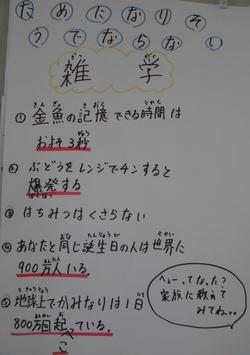 ためたなりそ
うでならない
雑学
①金魚の記憶できる時間は
およそ3秒
②ぶどうをレンジでチンすると
爆発する
③はちみつはくさらない
④あなたと同じ誕生日の人は世界に
900万人いる。
⑤地球上でかみなりは1日
800万回起こっている。
へぇーってなった?
家族に教えて
みてね。